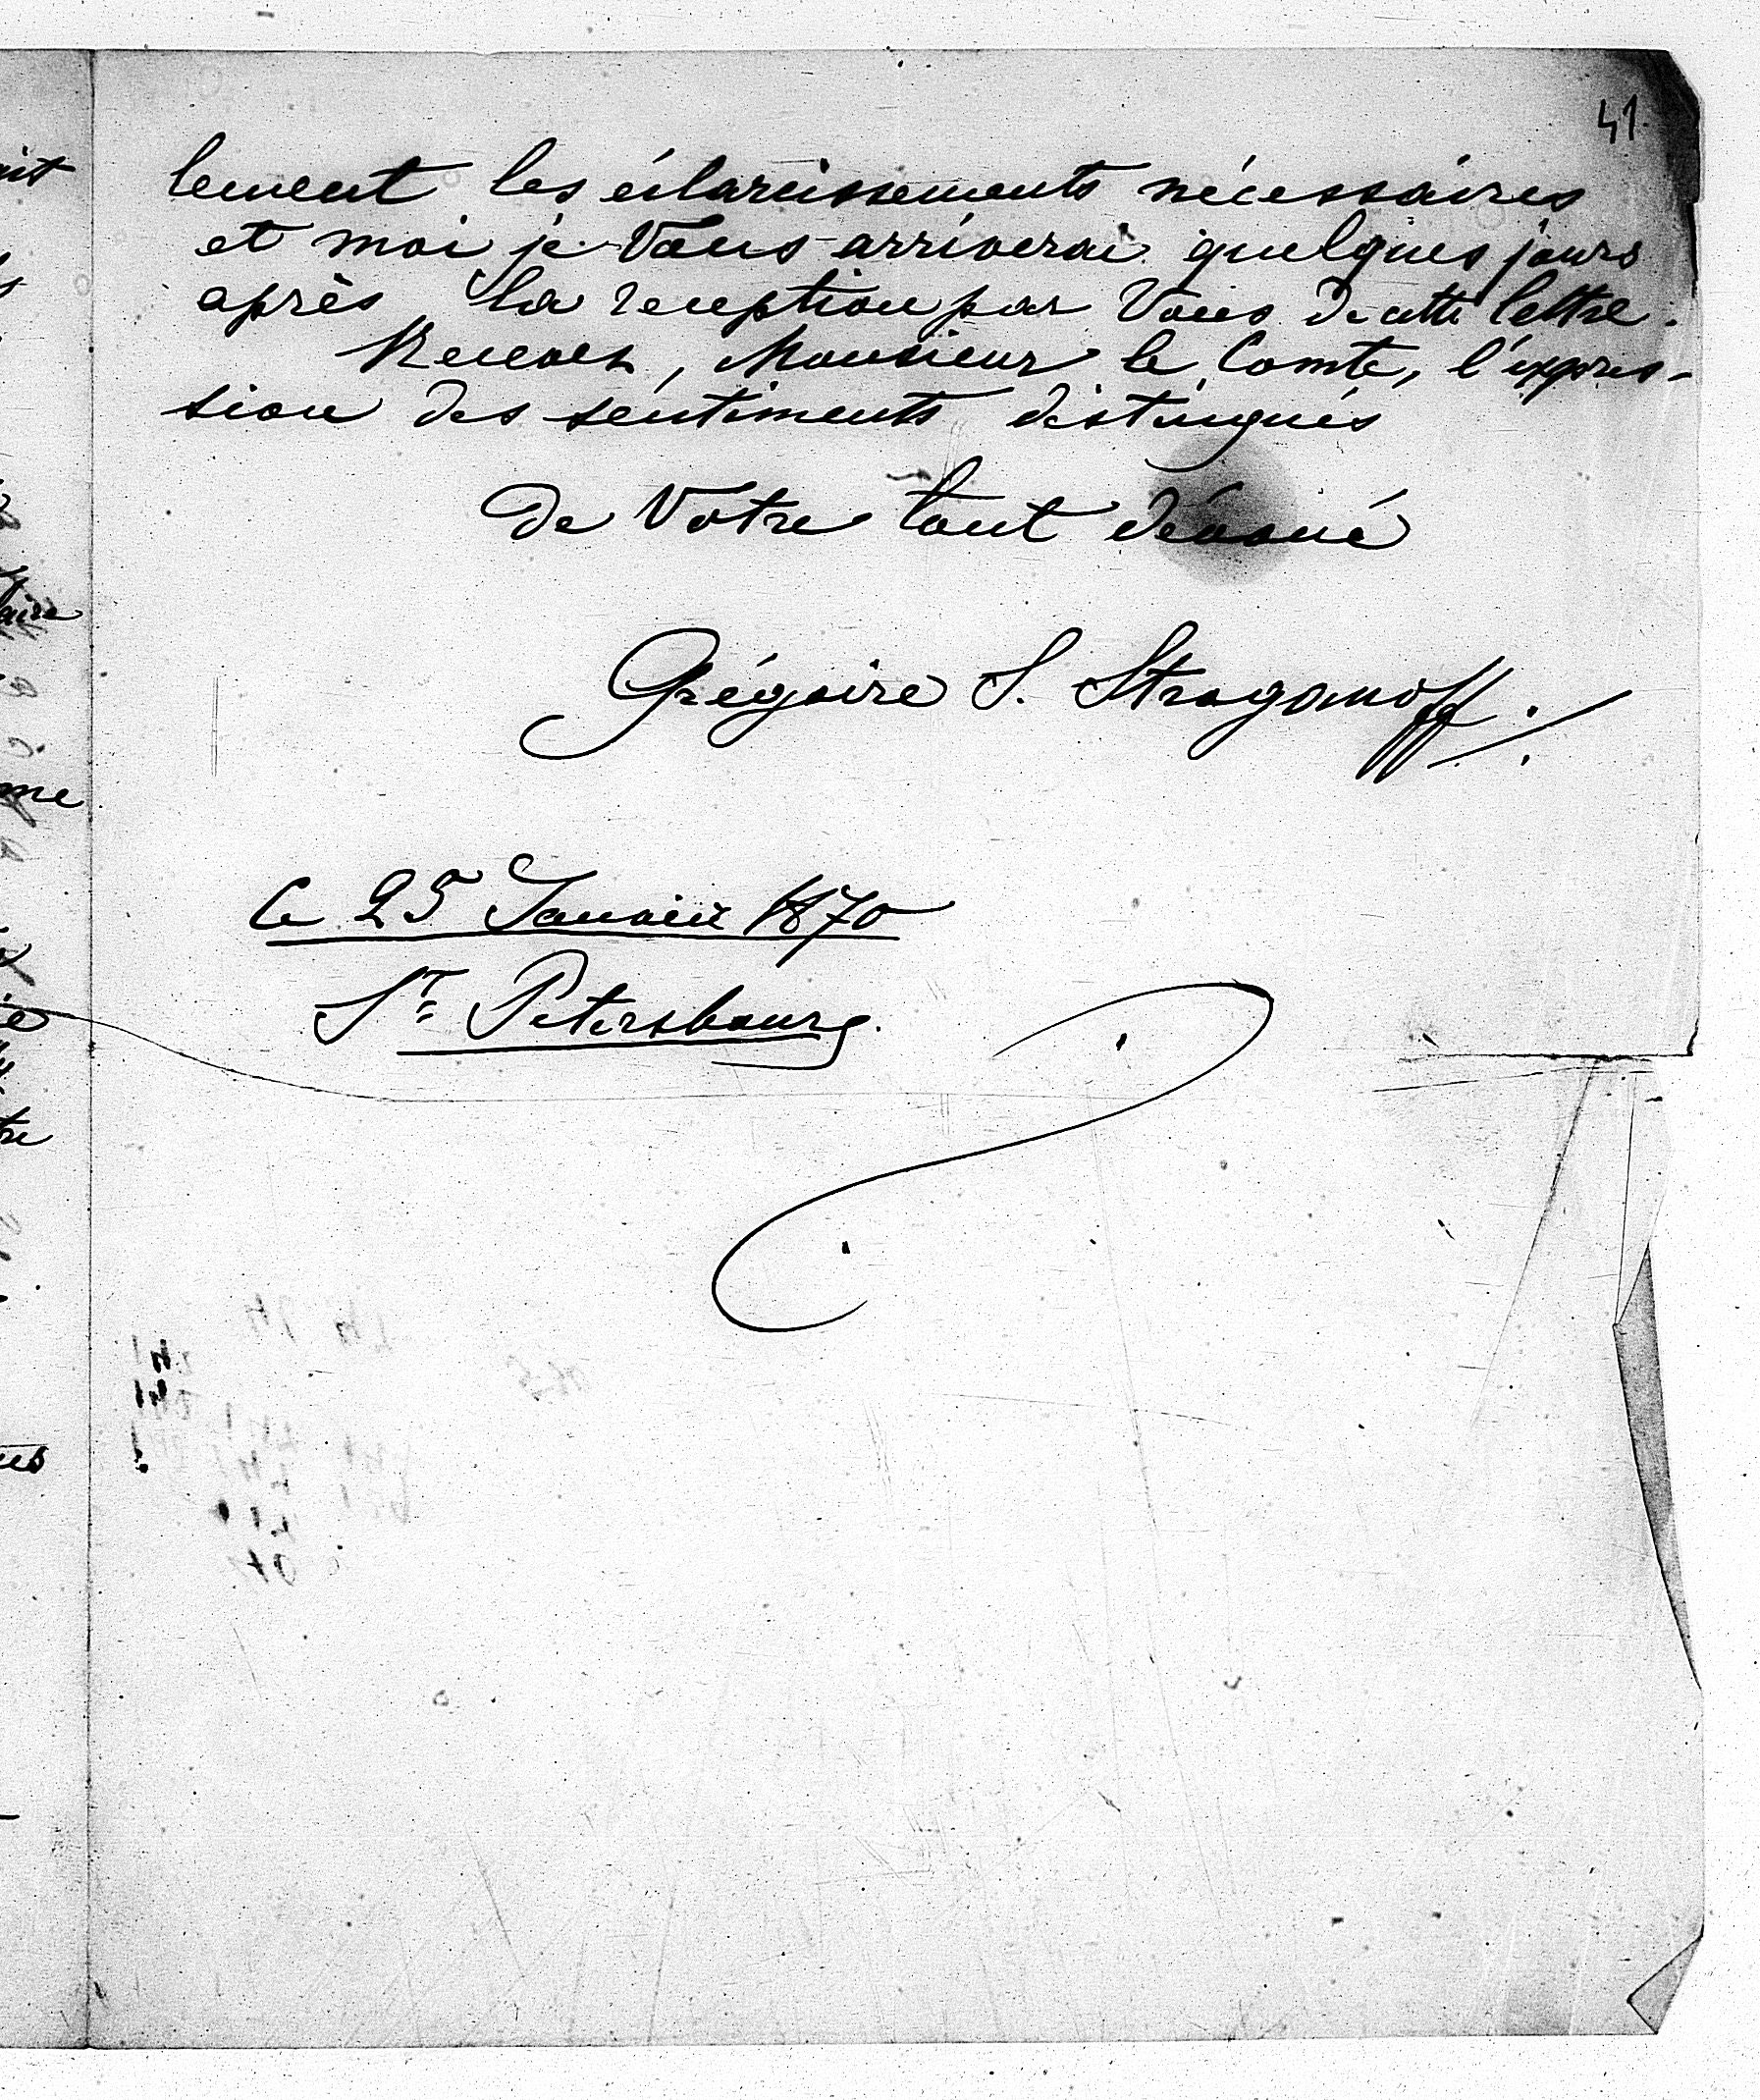 41.
lement les éclarcissements nécessaires
et moi je Vous arriverai quelques jours
après la reception par Vous de cette lettre.
Recevez, Monsieur le Comte, l'expres-
sion des sentiments distingués
de Votre tout dévoué
Grégoire S. Stroganoff.
Ce 25 Janvier 1870
St Petersbourg.